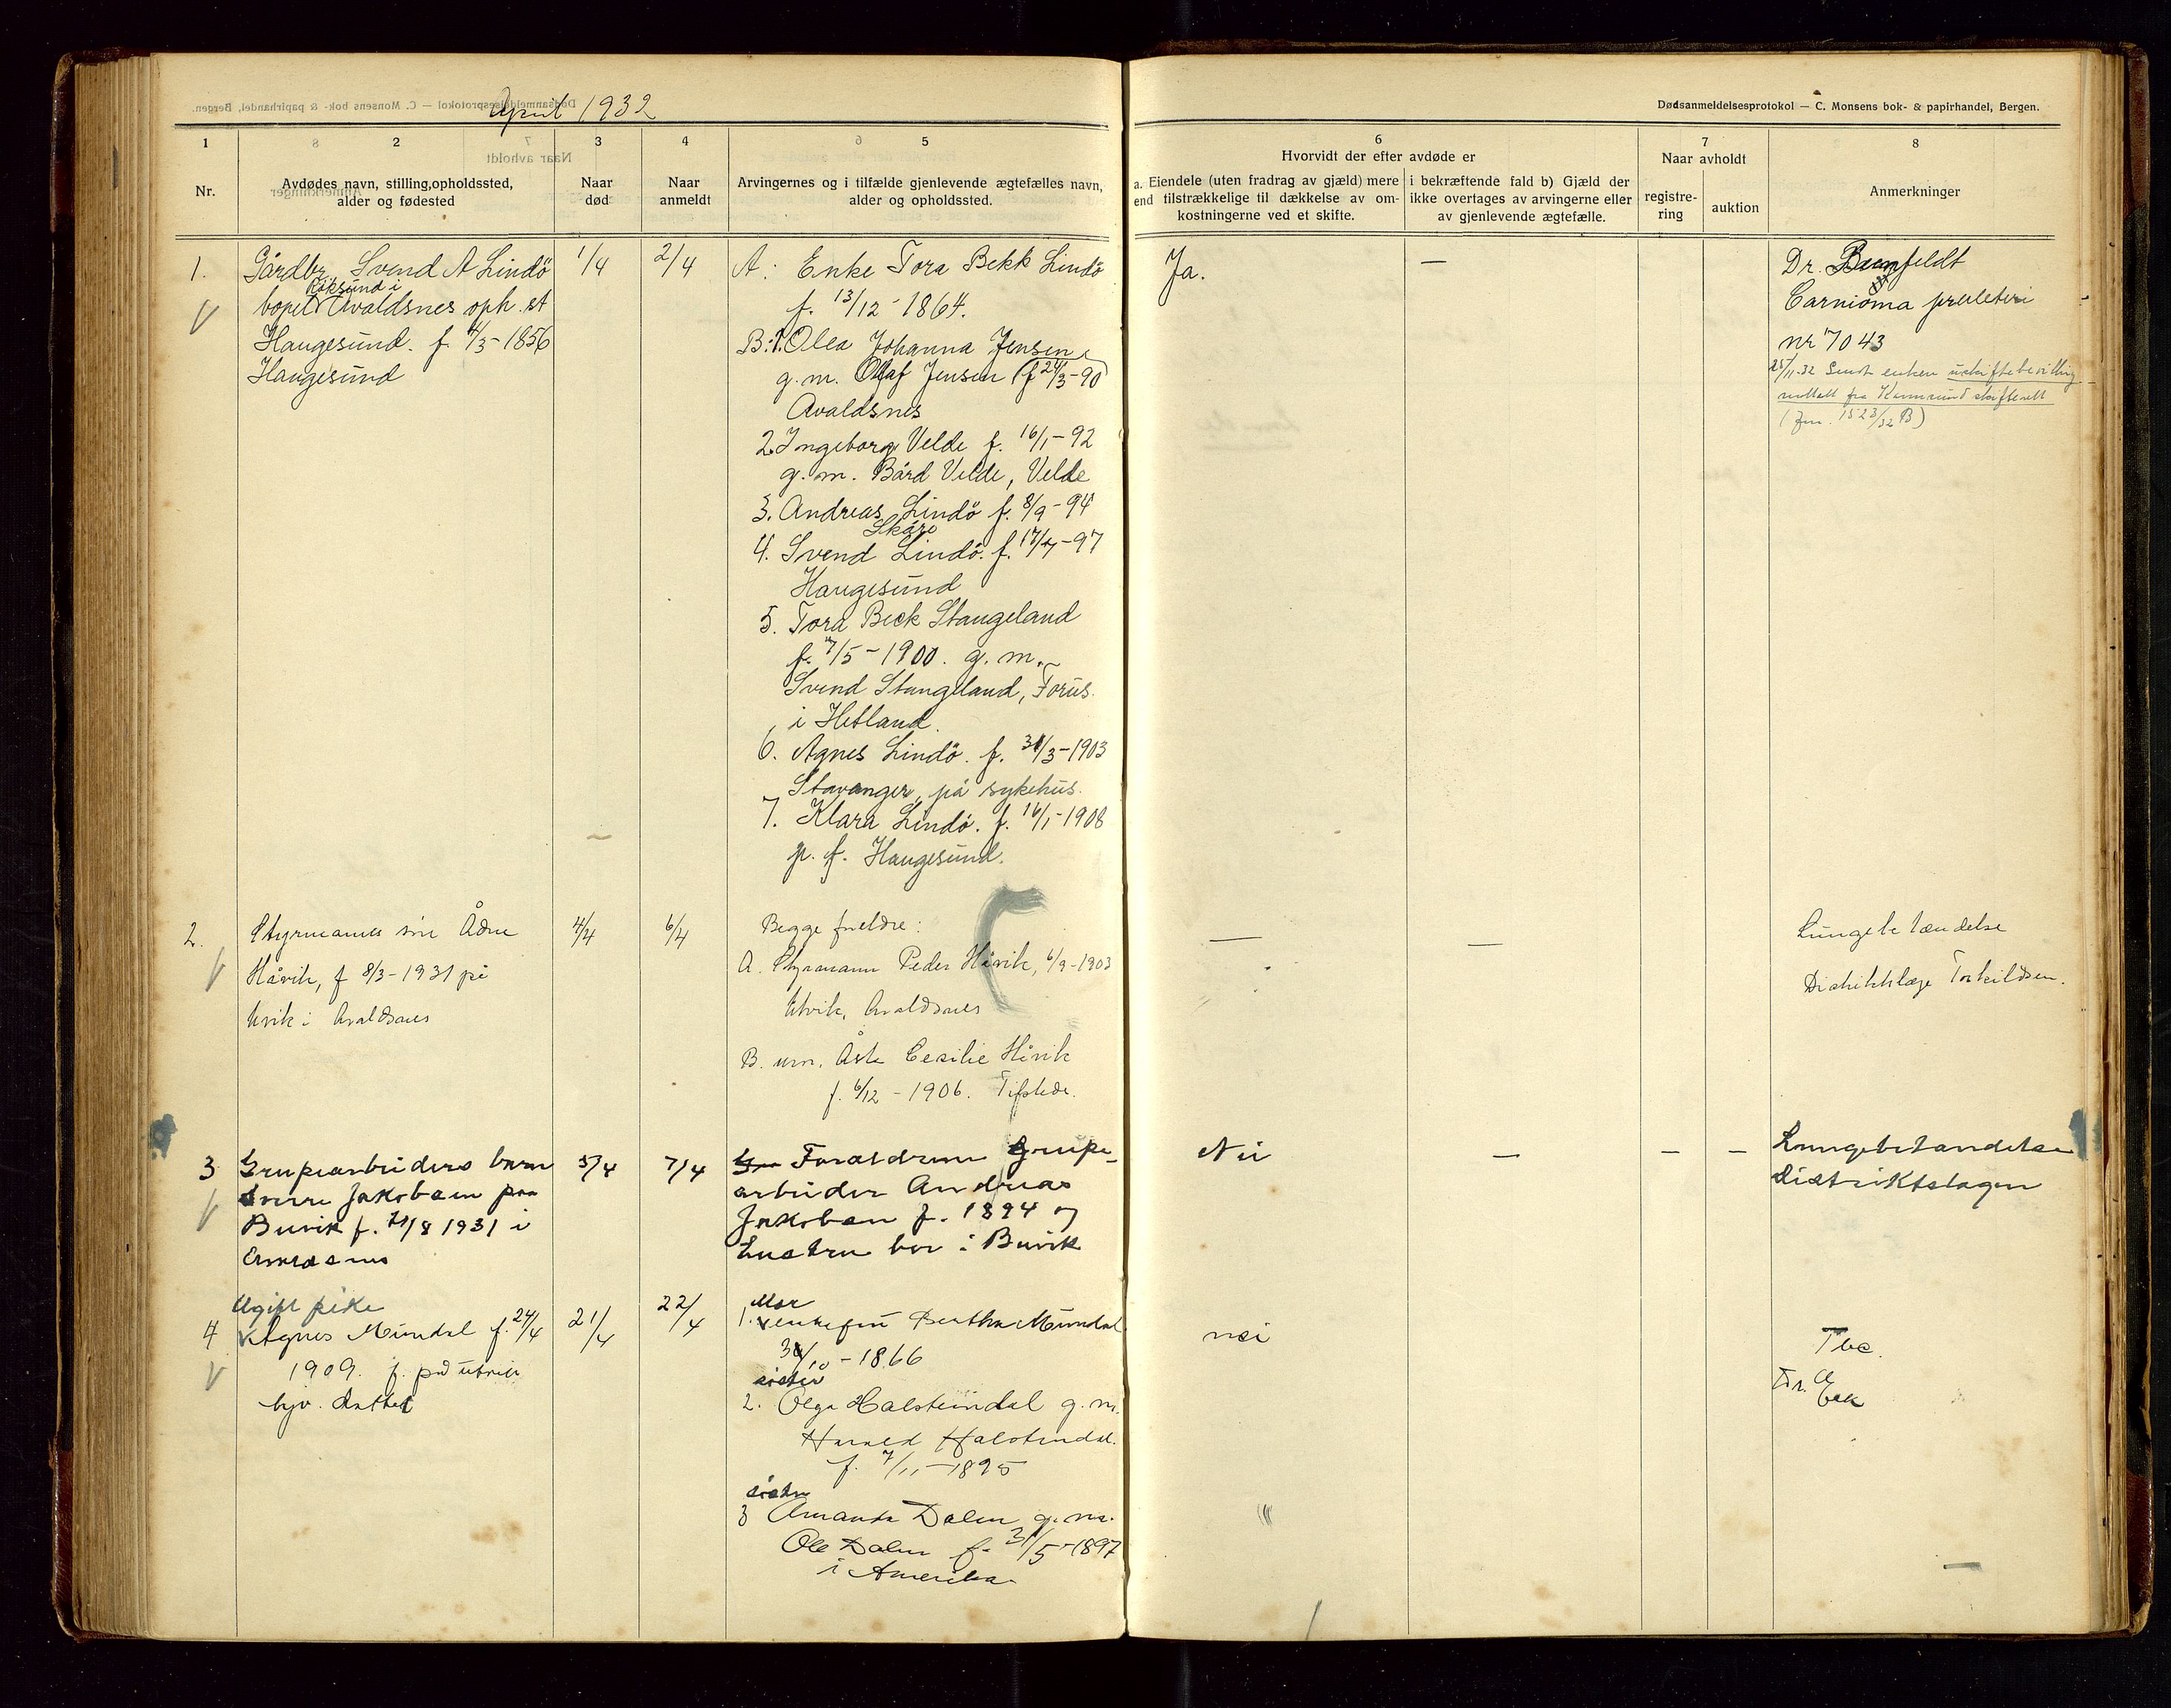 April 1932
Dødsanmeldelsesprotokol — C. Monsens bok- & papirhandel, Bergen.
1 2 3 4 5 6 7 8
Nr.
Avdødes navn, stilling, opholdssted,
alder og fødested
Naar
død
Naar
anmeldt
Arvingernes og i tilfælde gjenlevende ægtefælles navn,
alder og opholdssted.
Hvorvidt der efter avdøde er
a. Eiendele (uten fradrag av gjæld) mere
end tilstrækkelige til dækkelse av om-
kostningerne ved et skifte.
i bekræftende fald b) Gjæld der
ikke overtages av arvingerne eller
av gjenlevende ægtefælle.
Naar avholdt
registre-
ring
auktion
Anmerkninger
1.
Gårdbr. Svend A Lindö
Röksund i
bopel Avaldsnes oph. st
Haugesund. f. 4/3-1856
Haugesund
1/4
2/4
A: Enke Tora Bekk Lindö
f. 13/12-1864.
B: 1. Olea Johanna Jensen
g. m. Olaf Jensen (f 24/3-90)
Avaldsnes
2. Ingeborg Velde f. 16/1-92
g. m. Bård Velde, Velde
3. Andreas Lindö f. 8/9-94
Skåre
4. Svend Lindö. f. 17/7-97
Haugesund
5. Tora Beck Stangeland
f. 7/5-1900. g. m.
Svend Stangeland, Forus
i Hetland.
6. Agnes Lindö. f. 31/3-1903
Stavanger, på sykehus.
7. Klara Lindö. f. 16/1-1908
p. f. Haugesund.
Ja.
—
Dr.
nr 7043
25/11-32 Sendt enken uskiftebevilling
mottatt fra Karmsund skifterett
(Jnr. 1523/32 B)
2.
Styrmanns sön Ådne
Håvik, f 8/3-1931 på
Utvik i Avaldsnes
4/4
6/4
Begge foreldre:
A. Styrmann Peder Håvik, 6/9-1903
Utvik, Avaldsnes
B. Åsta Cecilie Håvik
f. 6/12-1906.
—
—
Lungebetændelse
Distriktslæge Torkildsen.
3
Grupearbeiders barn
Sverre Jakobsen paa
Buvik f. /8 1931 i
5/4
7/4
Foraldrene Grupe-
arbeider Andreas
Jakobsen f. 1894 og
hustru bor i Buvik
Nei
—
—
—
Lungebetandelse
distriktslagen
4
Ugift pike
Agnes Mundal f. 24/4
1909. f. på Utvik
21/4
22/4
Mor
1. enkefru Bertha Mundal
/10-1866
sister
2. Olga Halsteindal g. m.
Harald Halsteindal.
f. 7/11-1895
sister
3 Amanda Dalen g. m.
Ole Dalen f. 31/5-1897
i Amerika
nei
Tbc.
Dr. Eek
—